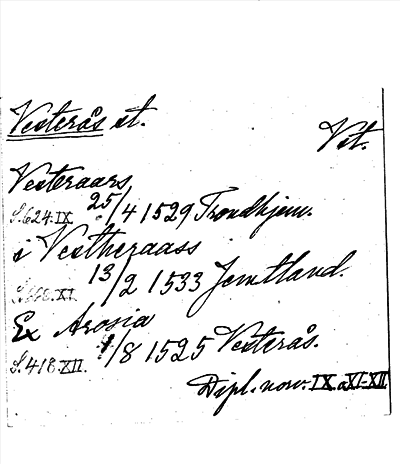 Vesterås st.
Vst.
Vesteraars
S. 624. IX 25/4 1529 Trondhjem.
i Vestheraass
XI. 13/2 1533 Jemtland.
Ex Arosia
S. 418. XII. /8 1525 Vesterås.
Dipl. norv. IX. o XI-XII